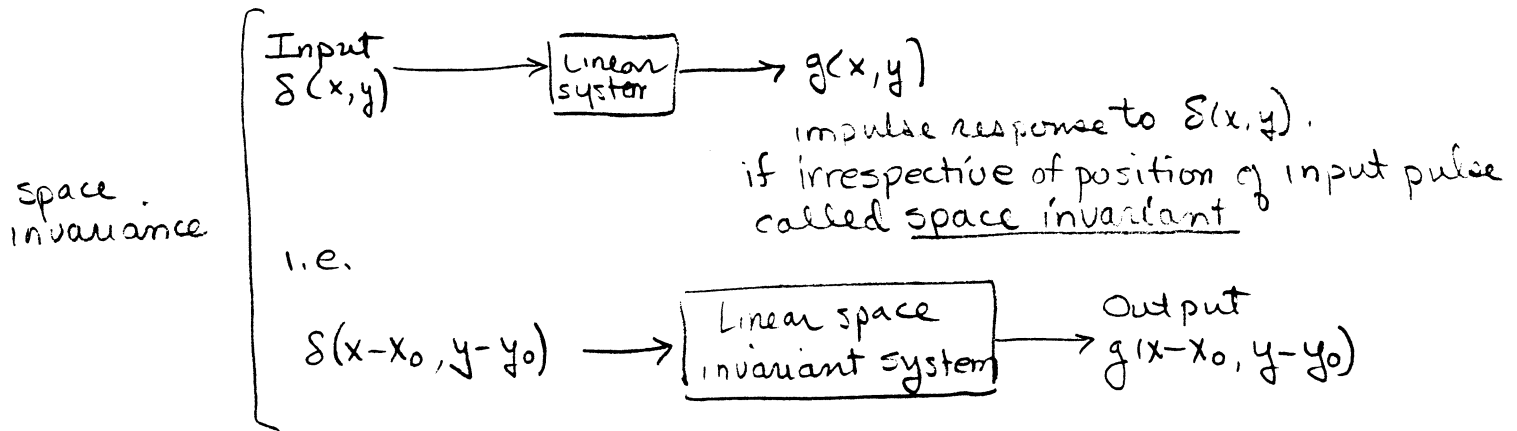 Input
δ(x,y)
Linear
system
g(x,y)
impulse response to δ(x,y).
if irrespective of position of input pulse
called space invariant
space
invariance
i.e.
δ(x-x₀, y-y₀)
Linear space
invariant system
Output
g(x-x₀, y-y₀)